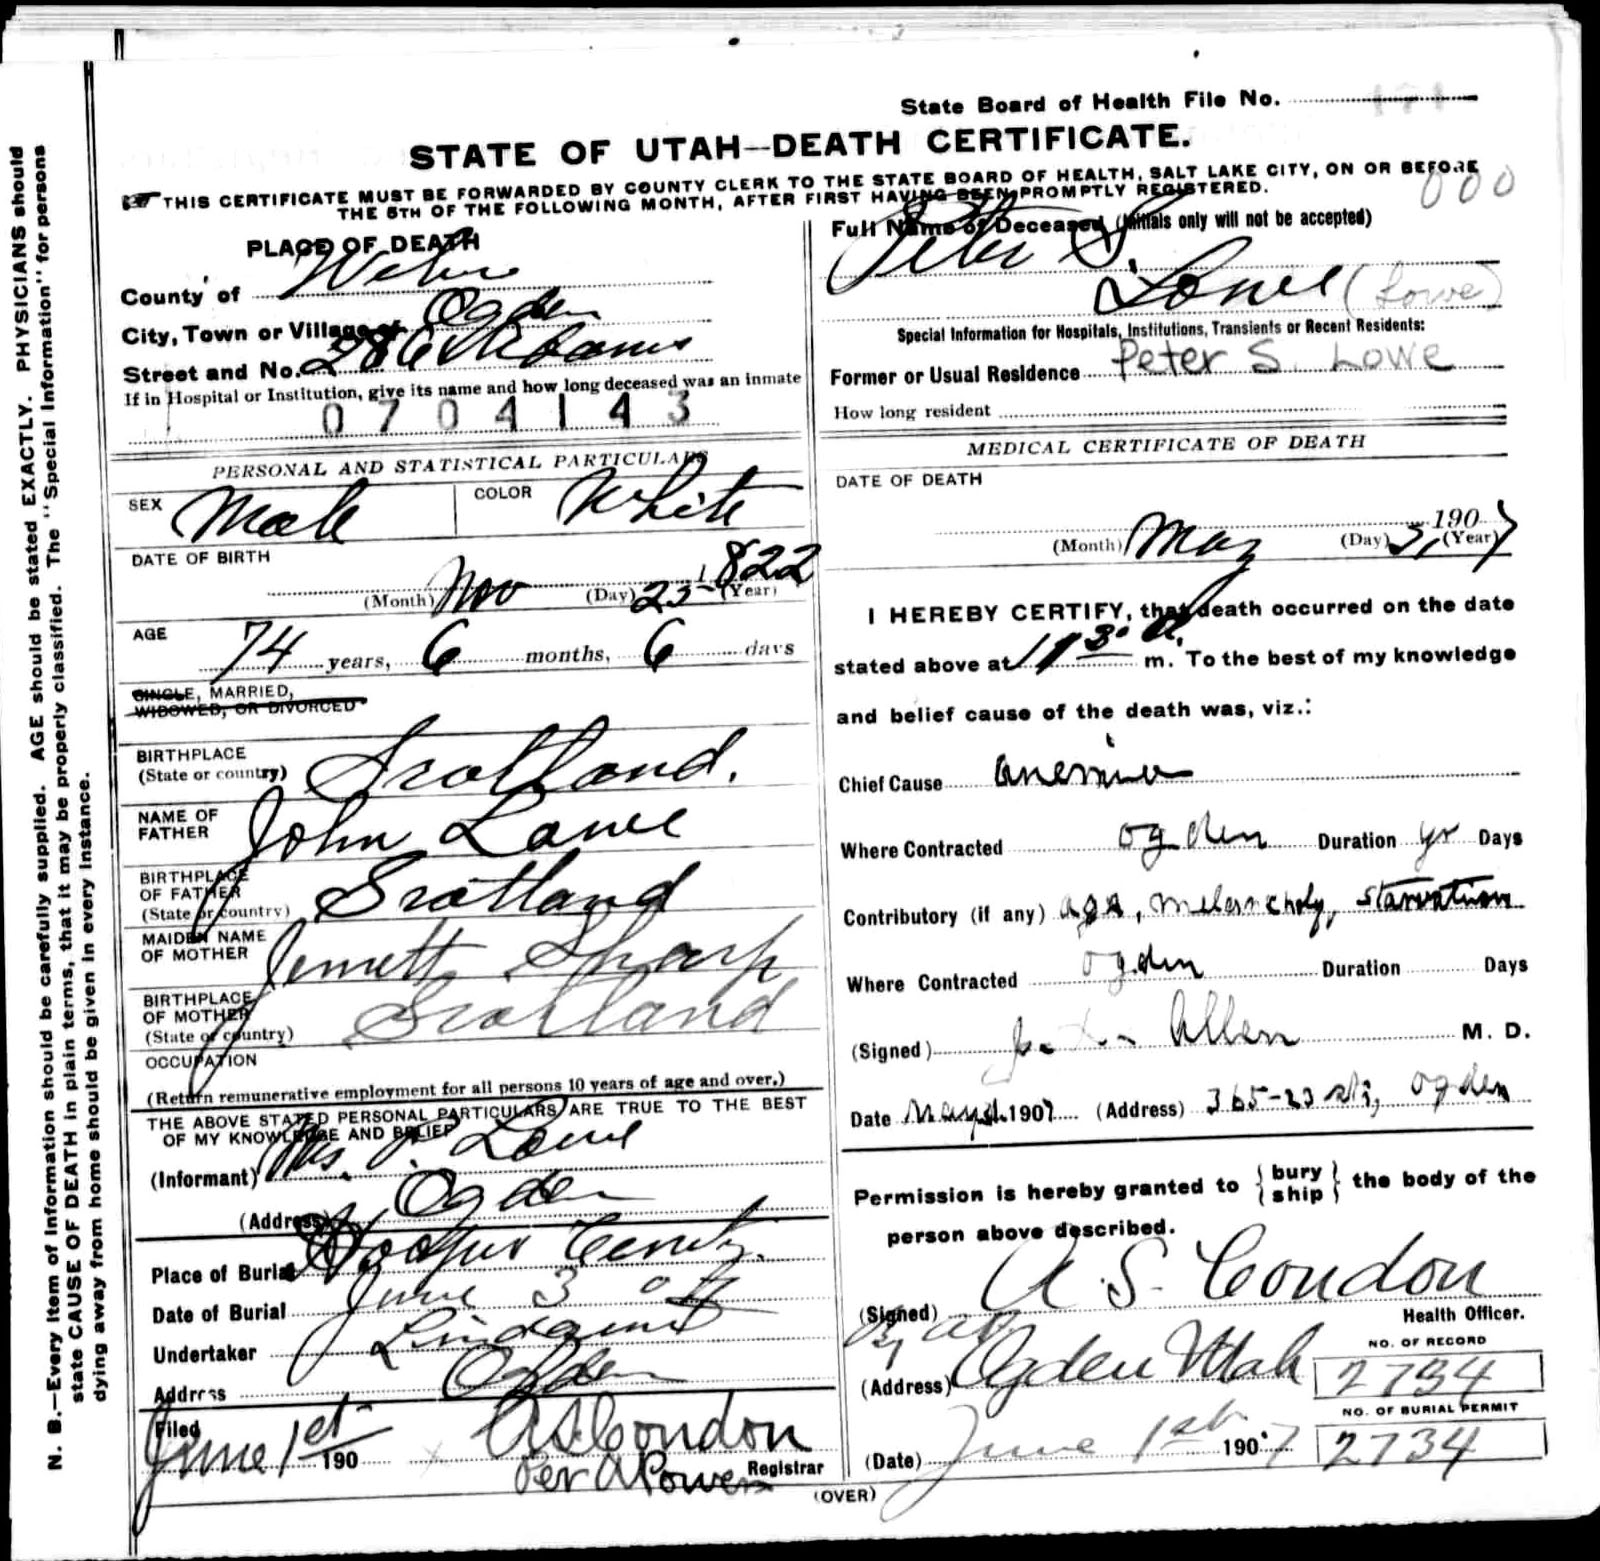 State Board of Health File No. 171
STATE OF UTAH—DEATH CERTIFICATE.
THIS CERTIFICATE MUST BE FORWARDED BY COUNTY CLERK TO THE STATE BOARD OF HEALTH, SALT LAKE CITY, ON OR BEFORE
THE 5TH OF THE FOLLOWING MONTH, AFTER FIRST HAVING BEEN PROMPTLY REGISTERED.
000
N. B.—Every item of information should be carefully supplied. AGE should be stated EXACTLY. PHYSICIANS should
state CAUSE OF DEATH in plain terms, that it may be properly classified. The "Special Information" for persons
dying away from home should be given in every instance.
PLACE OF DEATH
County of Weber
City, Town or Village of Ogden
Street and No. Adams
If in Hospital or Institution, give its name and how long deceased was an inmate
0704143
PERSONAL AND STATISTICAL PARTICULARS
SEX Male COLOR White
DATE OF BIRTH
(Month) Nov (Day) 25 (Year) 1822
AGE
74 years, 6 months, 6 days
SINGLE, MARRIED,
WIDOWED, OR DIVORCED
BIRTHPLACE
(State or country) Scotland.
NAME OF
FATHER John Lowe
BIRTHPLACE
OF FATHER
(State or country) Scotland
MAIDEN NAME
OF MOTHER Jennett Sharp
BIRTHPLACE
OF MOTHER
(State or country) Scotland
OCCUPATION
(Return remunerative employment for all persons 10 years of age and over.)
THE ABOVE STATED PERSONAL PARTICULARS ARE TRUE TO THE BEST
OF MY KNOWLEDGE AND BELIEF
(Informant) Mrs. P. Lowe
(Address) Ogden
Place of Burial Hooper Cemty.
Date of Burial June 3 07
Undertaker Lindquist
Address Ogden
Filed
June 1st 190 A S Condon
Per A Powers Registrar
Full Name of Deceased (Initials only will not be accepted)
Peter S.
Lowe (Lowe)
Special Information for Hospitals, Institutions, Transients or Recent Residents:
Former or Usual Residence Peter S. Lowe
How long resident
MEDICAL CERTIFICATE OF DEATH
DATE OF DEATH
(Month) May (Day) 31 1907 (Year)
I HEREBY CERTIFY, that death occurred on the date
stated above at 11 30 a. m. To the best of my knowledge
and belief cause of the death was, viz.:
Chief Cause anemia
Where Contracted Ogden Duration yr Days
Contributory (if any) age, melancholy, starvation
Where Contracted Ogden Duration Days
(Signed) Allen M. D.
Date May 1907 (Address) 365-23 st, Ogden
Permission is hereby granted to {bury
ship} the body of the
person above described.
(Signed) A. S. Condon
Health Officer.
(Address) Ogden Utah
NO. OF RECORD
2734
NO. OF BURIAL PERMIT
2734
(Date) June 1st 1907
(OVER)